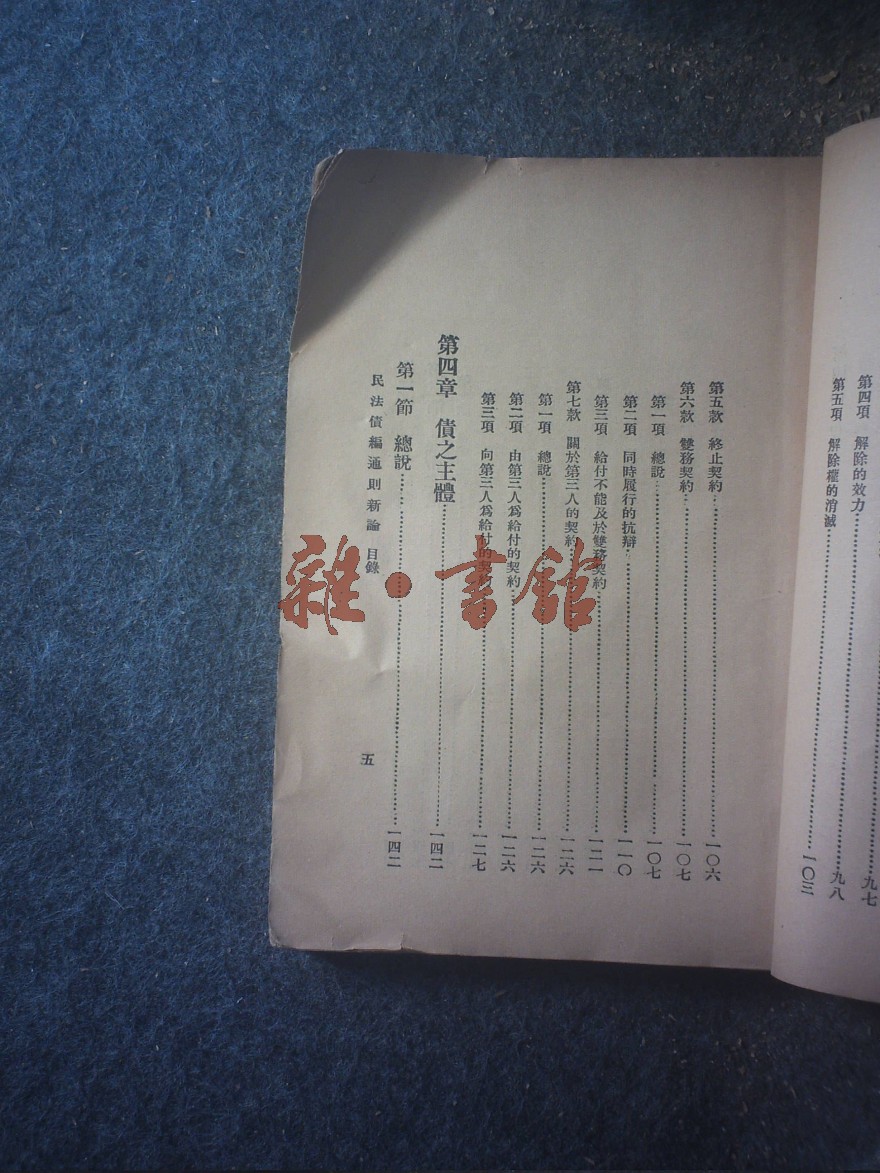 第四項　解除的效力……九七
第五項　解除權的消滅……九八
……一〇三
第五款　終止契約……一〇六
第六款　雙務契約……一〇七
第一項　總說……一〇七
第二項　同時履行的抗辯……一一〇
第三項　給付不能及於雙務契約……一二一
第七款　關於第三人的契約……一二六
第一項　總說……一二六
第二項　由第三人爲給付的契約……一二六
第三項　向第三人爲給付的契約……一二七
第四章　債之主體……一四二
第一節　總說……一四二
民法債編通則新論　目錄
五
雜·書館